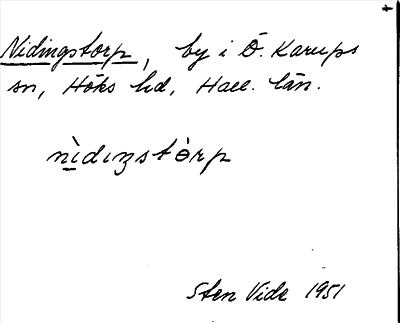 Nidingstorp, by i Ö. Karups
sn, Höks hd, Hall. län.
nìdıŋstòrp
Sten Vide 1951